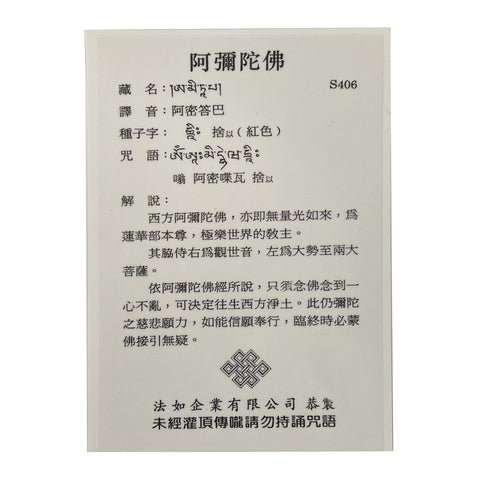 阿彌陀佛
S406
藏 名：༄ཨ་མི་ཏཱ་པ།
譯 音：阿密答巴
種子字：ཧྲཱིཿ 捨以（紅色）
咒 語：ཨོཾ་ཨཱཿམི་དྷེ་ཝ་ཧྲཱིཿ
嗡 阿密喋瓦 捨以
解 說：
西方阿彌陀佛，亦即無量光如來，爲
蓮華部本尊，極樂世界的教主。
其脇侍右爲觀世音，左爲大勢至兩大
菩薩。
依阿彌陀佛經所說，只須念佛念到一
心不亂，可決定往生西方淨土。此仍彌陀
之慈悲願力，如能信願奉行，臨終時必蒙
佛接引無疑。
法如企業有限公司 恭製
未經灌頂傳嚨請勿持誦咒語